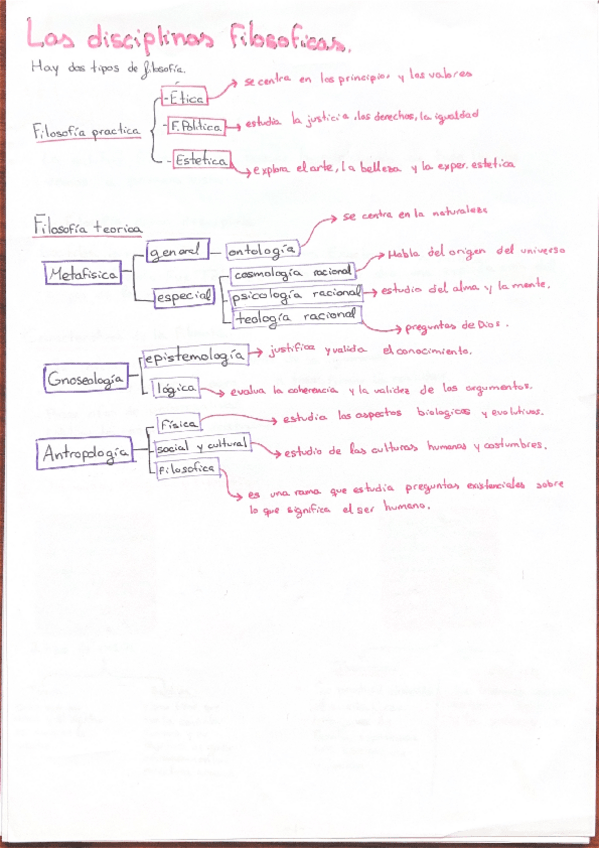 Las disciplinas filosoficas.
Hay dos tipos de filosofía.
Filosofía practica
- Ética → se centra en los principios y los valores
- F. Política → estudia la justicia, los derechos, la igualdad
- Estetica → explora el arte, la belleza y la exper. estetica
Filosofía teorica
Metafísica
general - ontología → se centra en la naturaleza
especial
cosmología racional → Habla del origen del universo
psicología racional → estudio del alma y la mente.
teología racional → preguntas de Dios.
Gnoseología
epistemología → justifica y valida el conocimiento.
lógica → evalua la coherencia y la validez de los argumentos.
Antropología
Física → estudia los aspectos biologicos y evolutivos.
social y cultural → estudio de las culturas humanas y costumbres.
Filosofica → es una rama que estudia preguntas existenciales sobre
lo que significa el ser humano.